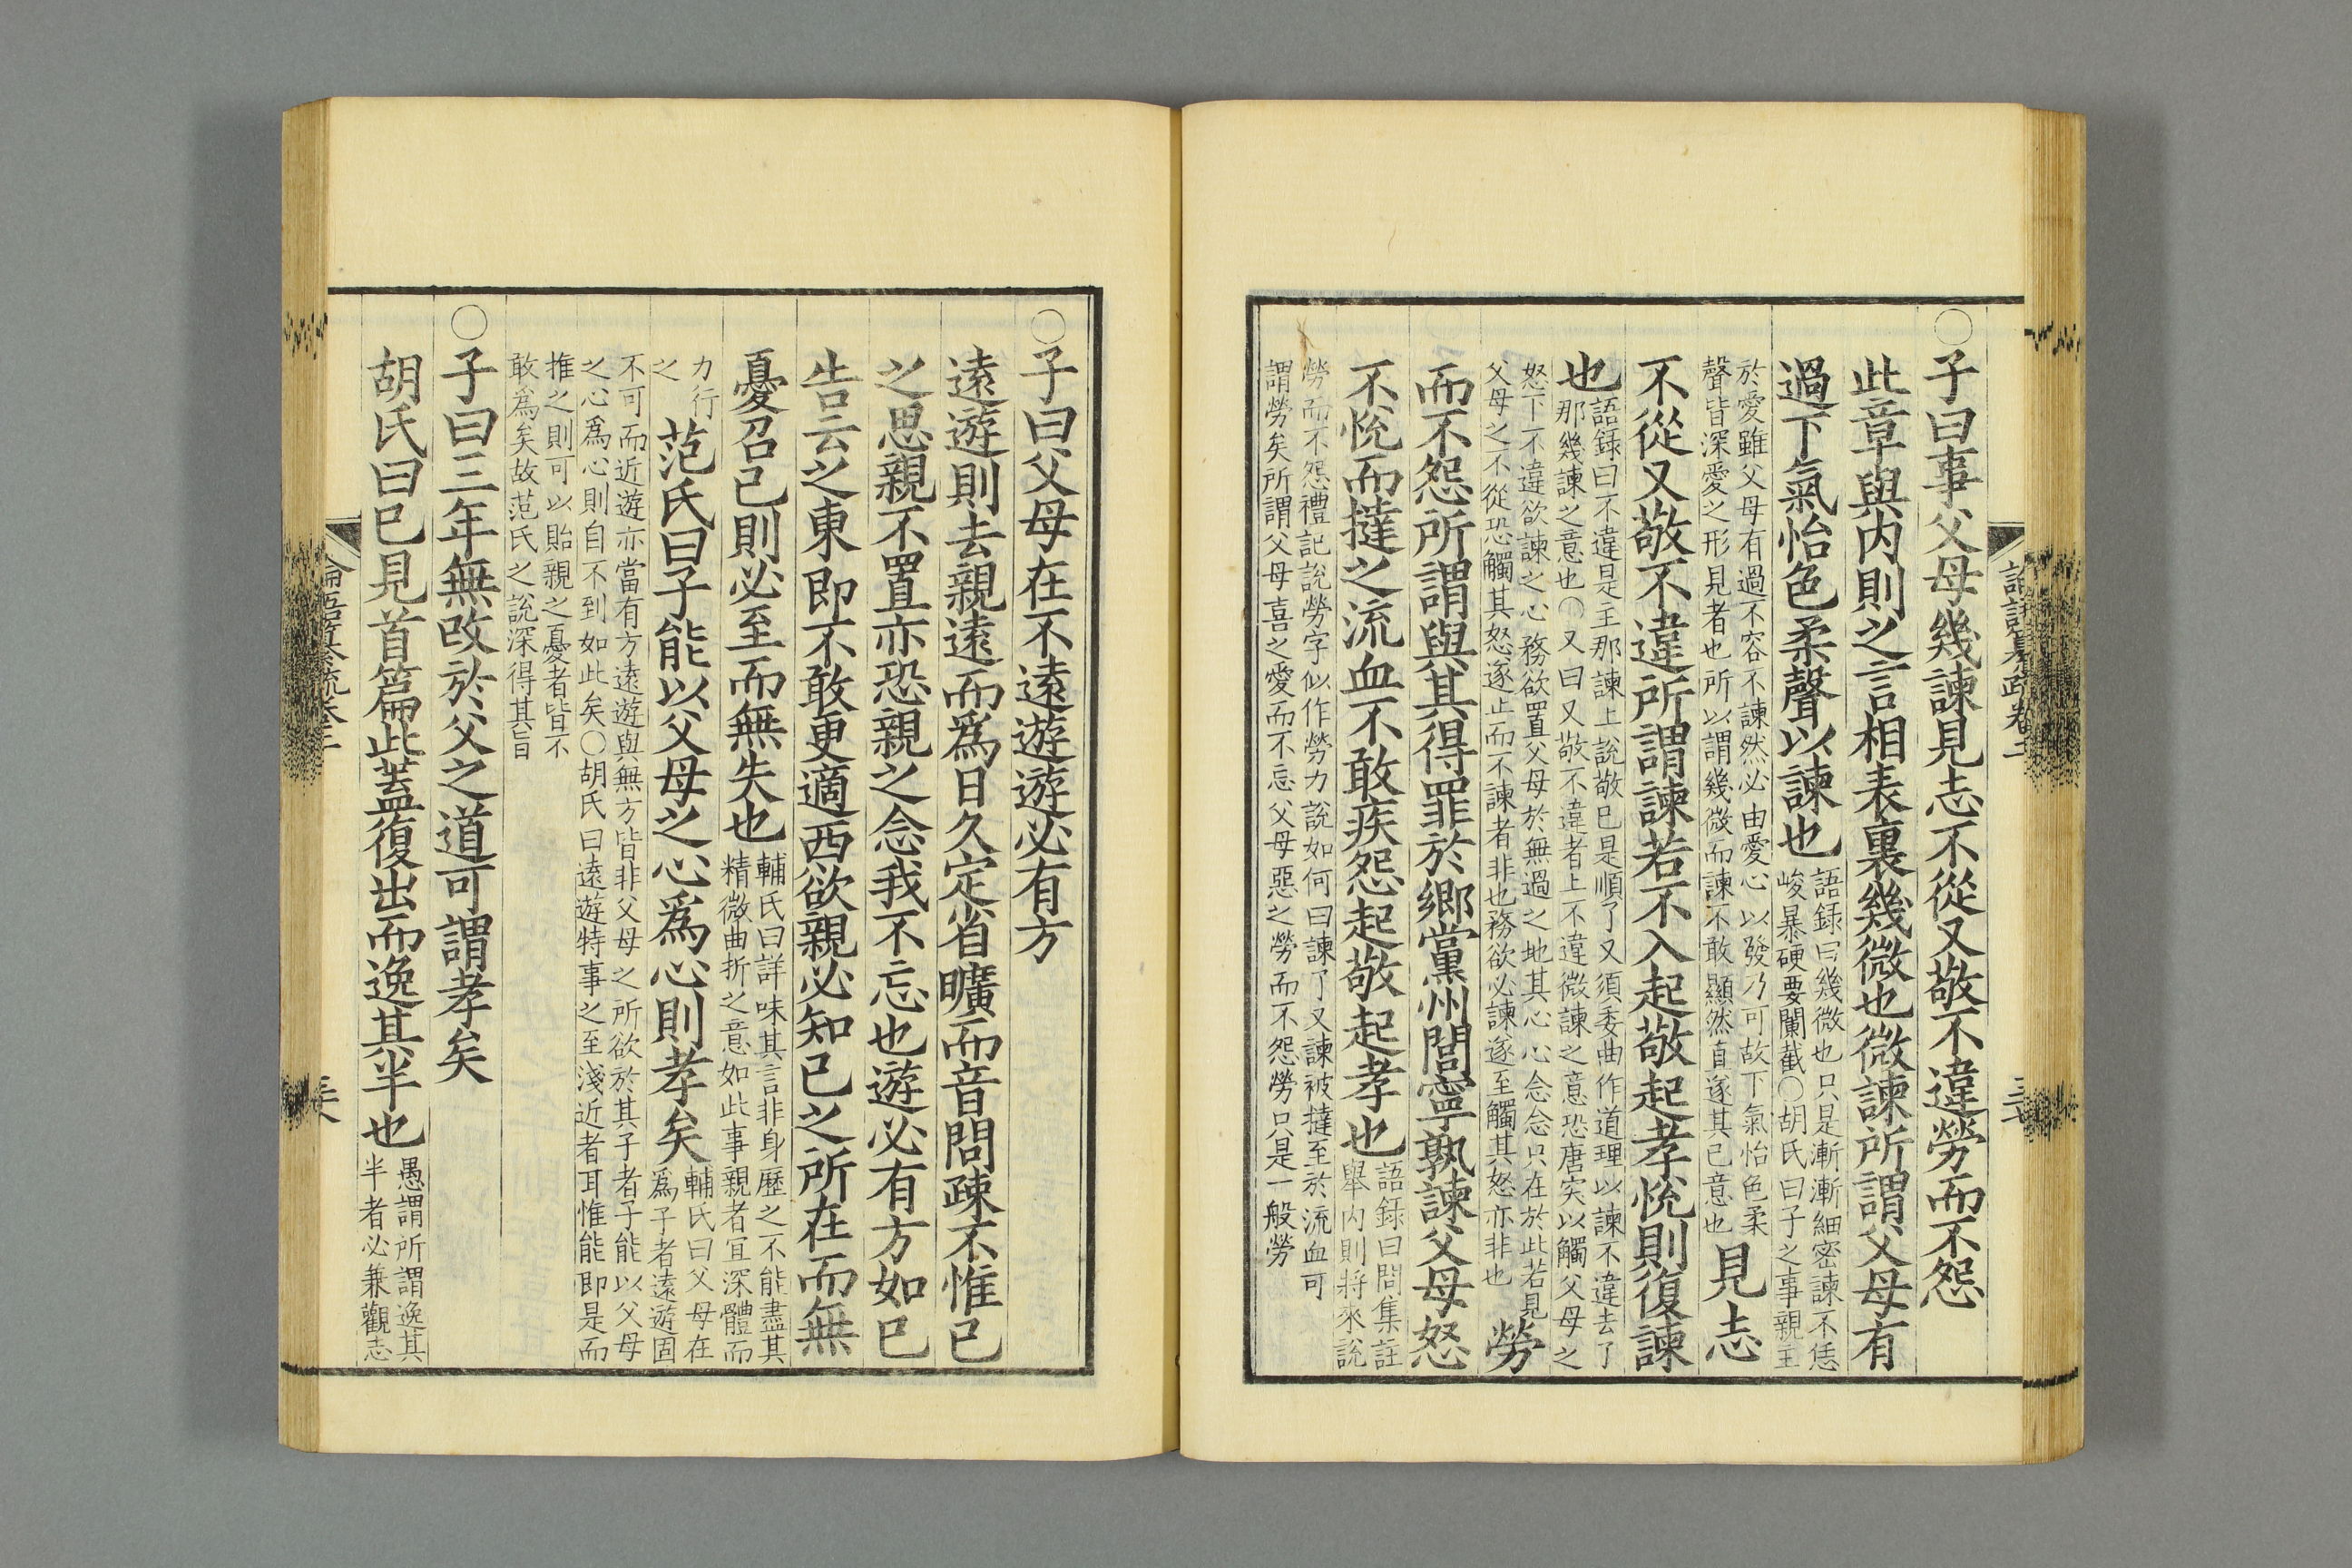 〇子曰事父母幾諫見志不從又敬不違勞而不怨
此章與内則之言相表裏幾微也微諫所謂父母有
過下氣怡色柔聲以諫也
語録曰幾微也只是漸漸細密諫不恁
峻暴硬要闌截〇胡氏曰子之事親主
於愛雖父母有過不容不諫然必由愛心以發乃可故下氣怡色柔
聲皆深愛之形見者也所以謂幾微而諫不敢顯然直遂其己意也
見志
不從又敬不違所謂諫若不入起敬起孝悅則復諫
也
語録曰不違是主那諫上說敬已是順了又須委曲作道理以諫不違去了
那幾諫之意也〇又曰又敬不違者上不違微諫之意恐唐突以觸父母之
怒下不違欲諫之心務欲置父母於無過之地其心心念念只在於此若見
父母之不從恐觸其怒遂止而不諫者非也務欲必諫遂至觸其怒亦非也
勞
而不怨所謂與其得罪於鄉黨州閭寧孰諫父母怒
不悅而撻之流血不敢疾怨起敬起孝也
語録曰問集註
舉内則將來說
勞而不怨禮記說勞字似作勞力說如何曰諫了又諫被撻至於流血可
謂勞矣所謂父母喜之愛而不忘父母惡之勞而不怨勞只是一般勞
〇子曰父母在不遠遊遊必有方
遠遊則去親遠而爲日久定省曠而音問疎不惟已
之思親不置亦恐親之念我不忘也遊必有方如已
告云之東即不敢更適西欲親必知已之所在而無
憂召己則必至而無失也
輔氏曰詳味其言非身歷之不能盡其
精微曲折之意如此事親者宜深體而
力行
之
范氏曰子能以父母之心爲心則孝矣
輔氏曰父母在
爲子者遠遊固
不可而近遊亦當有方遠遊與無方皆非父母之所欲於其子者子能以父母
之心爲心則自不到如此矣〇胡氏曰遠遊特事之至淺近者耳惟能即是而
推之則可以貽親之憂者皆不
敢爲矣故范氏之說深得其旨
〇子曰三年無改於父之道可謂孝矣
胡氏曰已見首篇此蓋復出而逸其半也
愚謂所謂逸其
半者必兼觀志